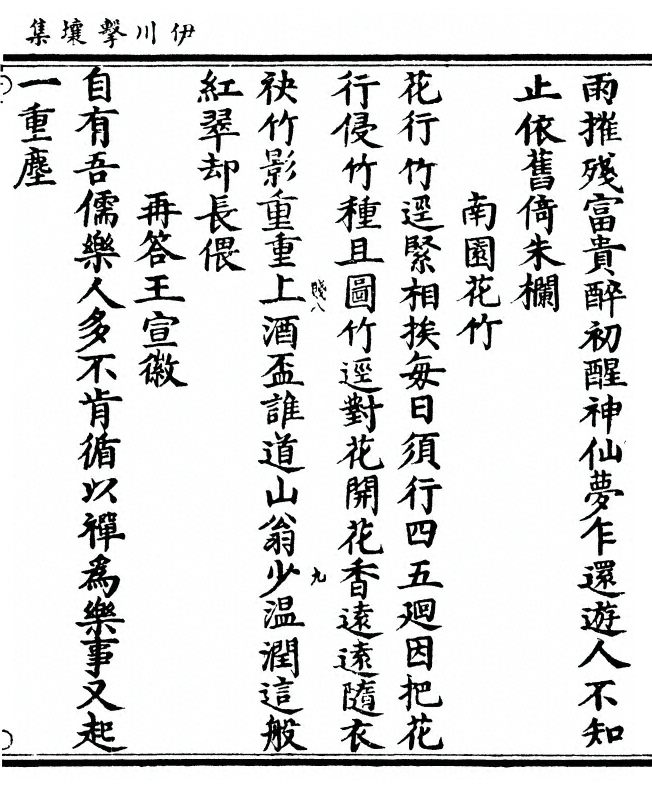 集壤擊川伊
雨摧殘富貴醉初醒神仙夢乍還遊人不知
止依舊倚朱欄
南園花竹
花行竹逕緊相挨每日須行四五廻因把花
行侵竹種且圖竹逕對花開花香遠遠隨衣
袂竹影重重上酒盃誰道山翁少温潤這般
紅翠却長偎
再答王宣徽
自有吾儒樂人多不肯循以禪爲樂事又起
一重塵